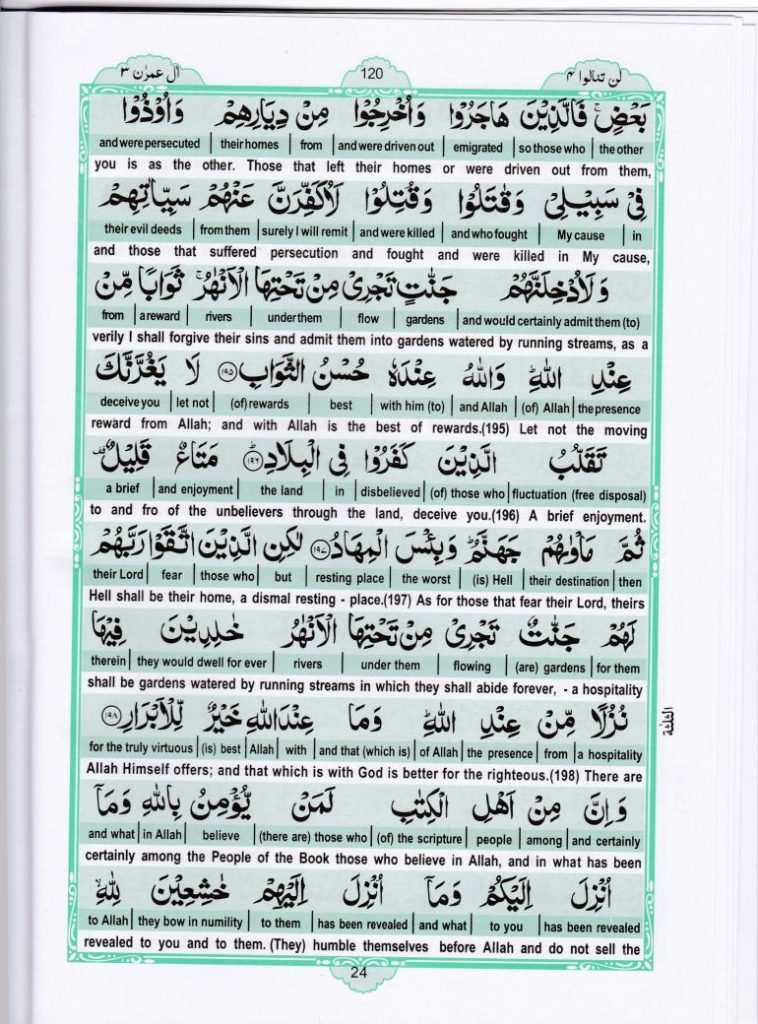 لن تنالوا ۴ 120 اٰل عمرٰن ۳
بَعْضٍ ۚ فَالَّذِيْنَ هَاجَرُوْا وَاُخْرِجُوْا مِنْ دِيَارِهِمْ وَاُوْذُوْا
and were persecuted | their homes | from | and were driven out | emigrated | so those who | the other
you is as the other. Those that left their homes or were driven out from them,
فِيْ سَبِيْلِيْ وَقٰتَلُوْا وَقُتِلُوْا لَاُكَفِّرَنَّ عَنْهُمْ سَيِّاٰتِهِمْ
their evil deeds | from them | surely I will remit | and were killed | and who fought | My cause | in
and those that suffered persecution and fought and were killed in My cause,
وَلَاُدْخِلَنَّهُمْ جَنّٰتٍ تَجْرِيْ مِنْ تَحْتِهَا الْاَنْهٰرُ ۚ ثَوَابًا مِّنْ
from | a reward | rivers | under them | flow | gardens | and would certainly admit them (to)
verily I shall forgive their sins and admit them into gardens watered by running streams, as a
عِنْدِ اللّٰهِ ؕ وَاللّٰهُ عِنْدَهٗ حُسْنُ الثَّوَابِ ۱۹۵ لَا يَغُرَّنَّكَ
deceive you | let not | (of) rewards | best | with him (to) | and Allah | (of) Allah | the presence
reward from Allah; and with Allah is the best of rewards.(195) Let not the moving
تَقَلُّبُ الَّذِيْنَ كَفَرُوْا فِى الْبِلَادِ ؕ ۱۹۶ مَتَاعٌ قَلِيْلٌ ۫
a brief | and enjoyment | the land | in | disbelieved | (of) those who | fluctuation (free disposal)
to and fro of the unbelievers through the land, deceive you.(196) A brief enjoyment.
ثُمَّ مَاْوٰىهُمْ جَهَنَّمُ ؕ وَبِئْسَ الْمِهَادُ ۱۹۷ لٰكِنِ الَّذِيْنَ اتَّقَوْا رَبَّهُمْ
their Lord | fear | those who | but | resting place | the worst | (is) Hell | their destination | then
Hell shall be their home, a dismal resting - place.(197) As for those that fear their Lord, theirs
لَهُمْ جَنّٰتٌ تَجْرِيْ مِنْ تَحْتِهَا الْاَنْهٰرُ خٰلِدِيْنَ فِيْهَا
therein | they would dwell for ever | rivers | under them | flowing | (are) gardens | for them
shall be gardens watered by running streams in which they shall abide forever, - a hospitality
نُزُلًا مِّنْ عِنْدِ اللّٰهِ ؕ وَمَا عِنْدَ اللّٰهِ خَيْرٌ لِّلْاَبْرَارِ ۱۹۸
الثلثة
for the truly virtuous | (is) best | Allah | with | and that (which is) | of Allah | the presence | from | a hospitality
Allah Himself offers; and that which is with God is better for the righteous.(198) There are
وَاِنَّ مِنْ اَهْلِ الْكِتٰبِ لَمَنْ يُّؤْمِنُ بِاللّٰهِ وَمَاۤ
and what | in Allah | believe | (there are) those who | (of) the scripture | people | among | and certainly
certainly among the People of the Book those who believe in Allah, and in what has been
اُنْزِلَ اِلَيْكُمْ وَمَاۤ اُنْزِلَ اِلَيْهِمْ خٰشِعِيْنَ لِلّٰهِ ۙ
to Allah | they bow in numility | to them | has been revealed | and what | to you | has been revealed
revealed to you and to them. (They) humble themselves before Allah and do not sell the
24